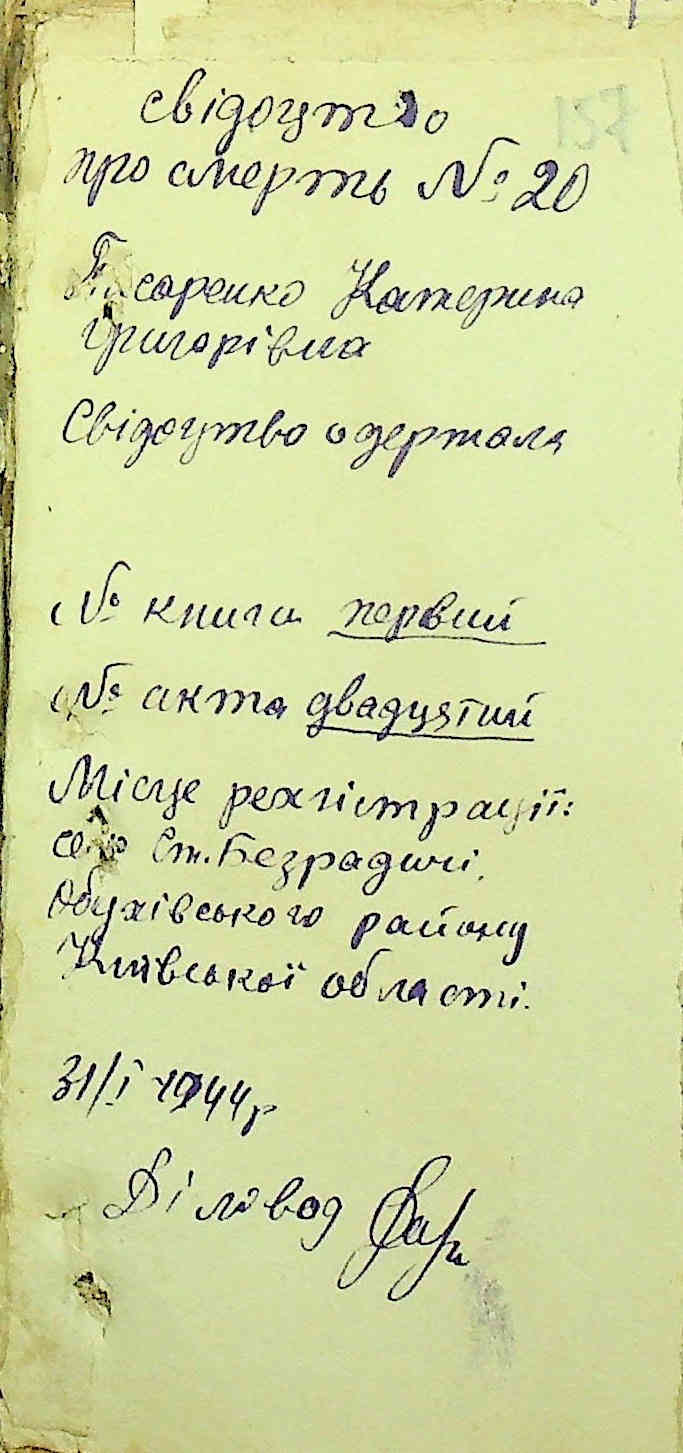 157
свідоцтво
про смерть № 20
Писаренко Катерина
Григорівна
Свідоцтво одержала
№ книги первий
№ акта двадцятий
Місце рехгістрації:
село Ст. Безрадичі,
Обухівського району
Київської області.
31/I 1944р
Діловод